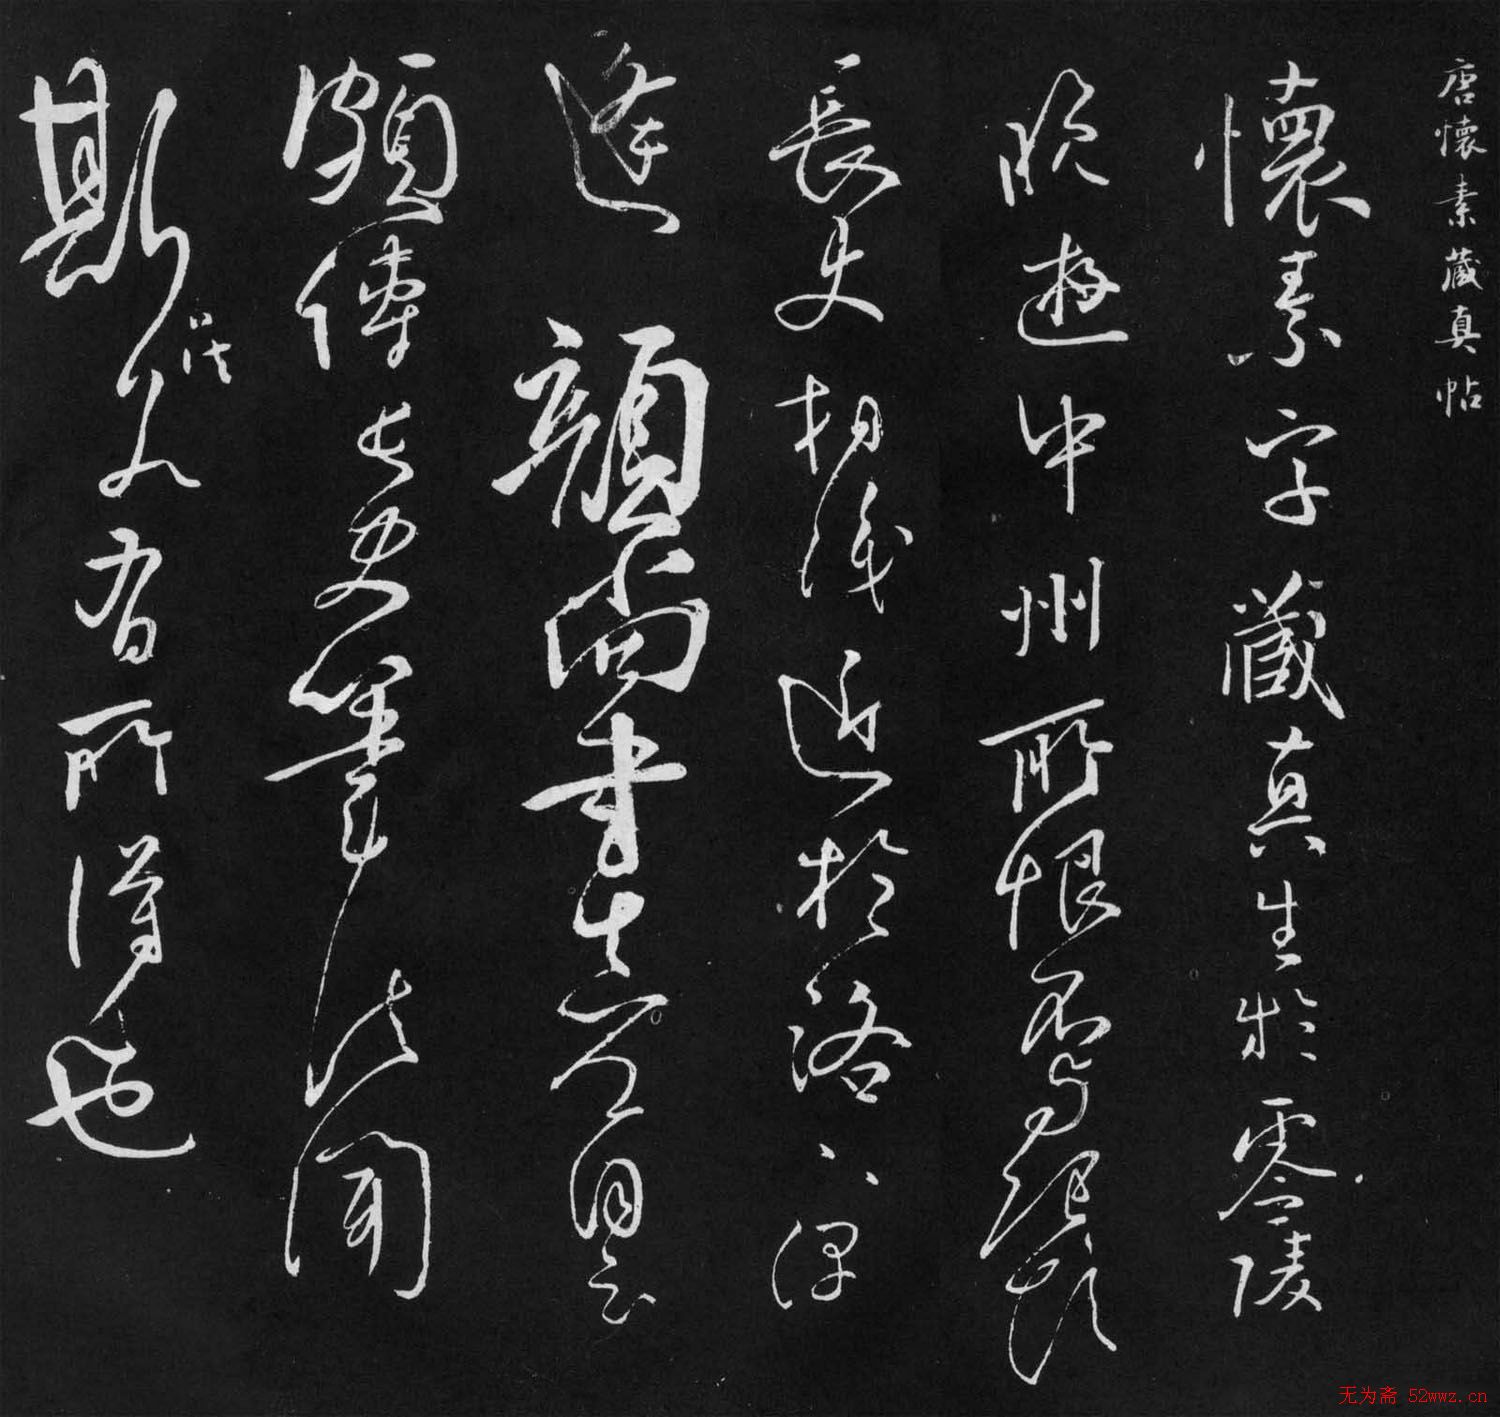 唐懷素藏真帖
懷素字藏真生於零陵
晚遊中州所恨不與張顛
長史相識近於洛下偶
逢顏尚書真卿自云
頗傳長史筆法聞
斯八法若有所得也
无为斋 52wwz.cn